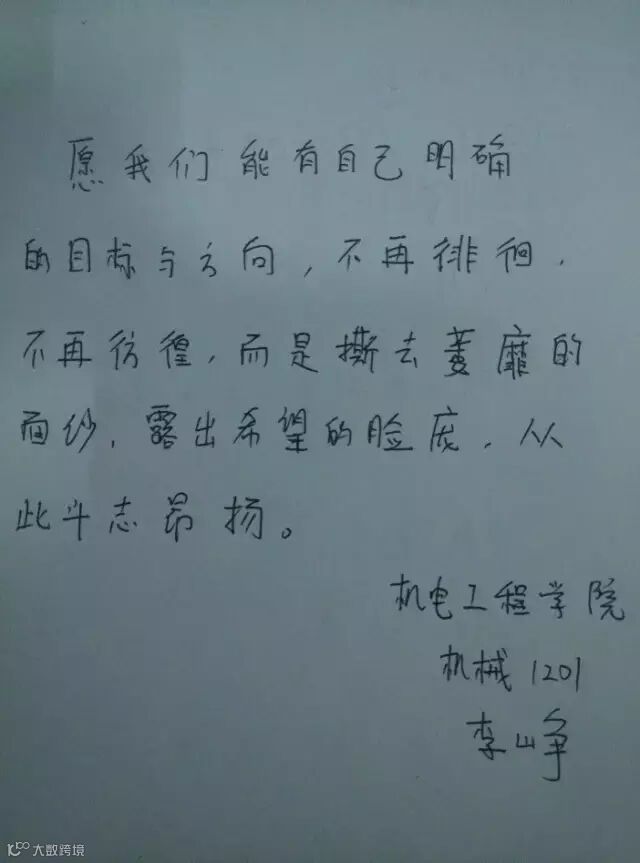 愿我们能有自己明确
的目标与方向,不再徘徊,
不再彷徨,而是撕去萎靡的
面纱,露出希望的脸庞,从
此斗志昂扬。
机电工程学院
机械1201
李峥
大数跨境